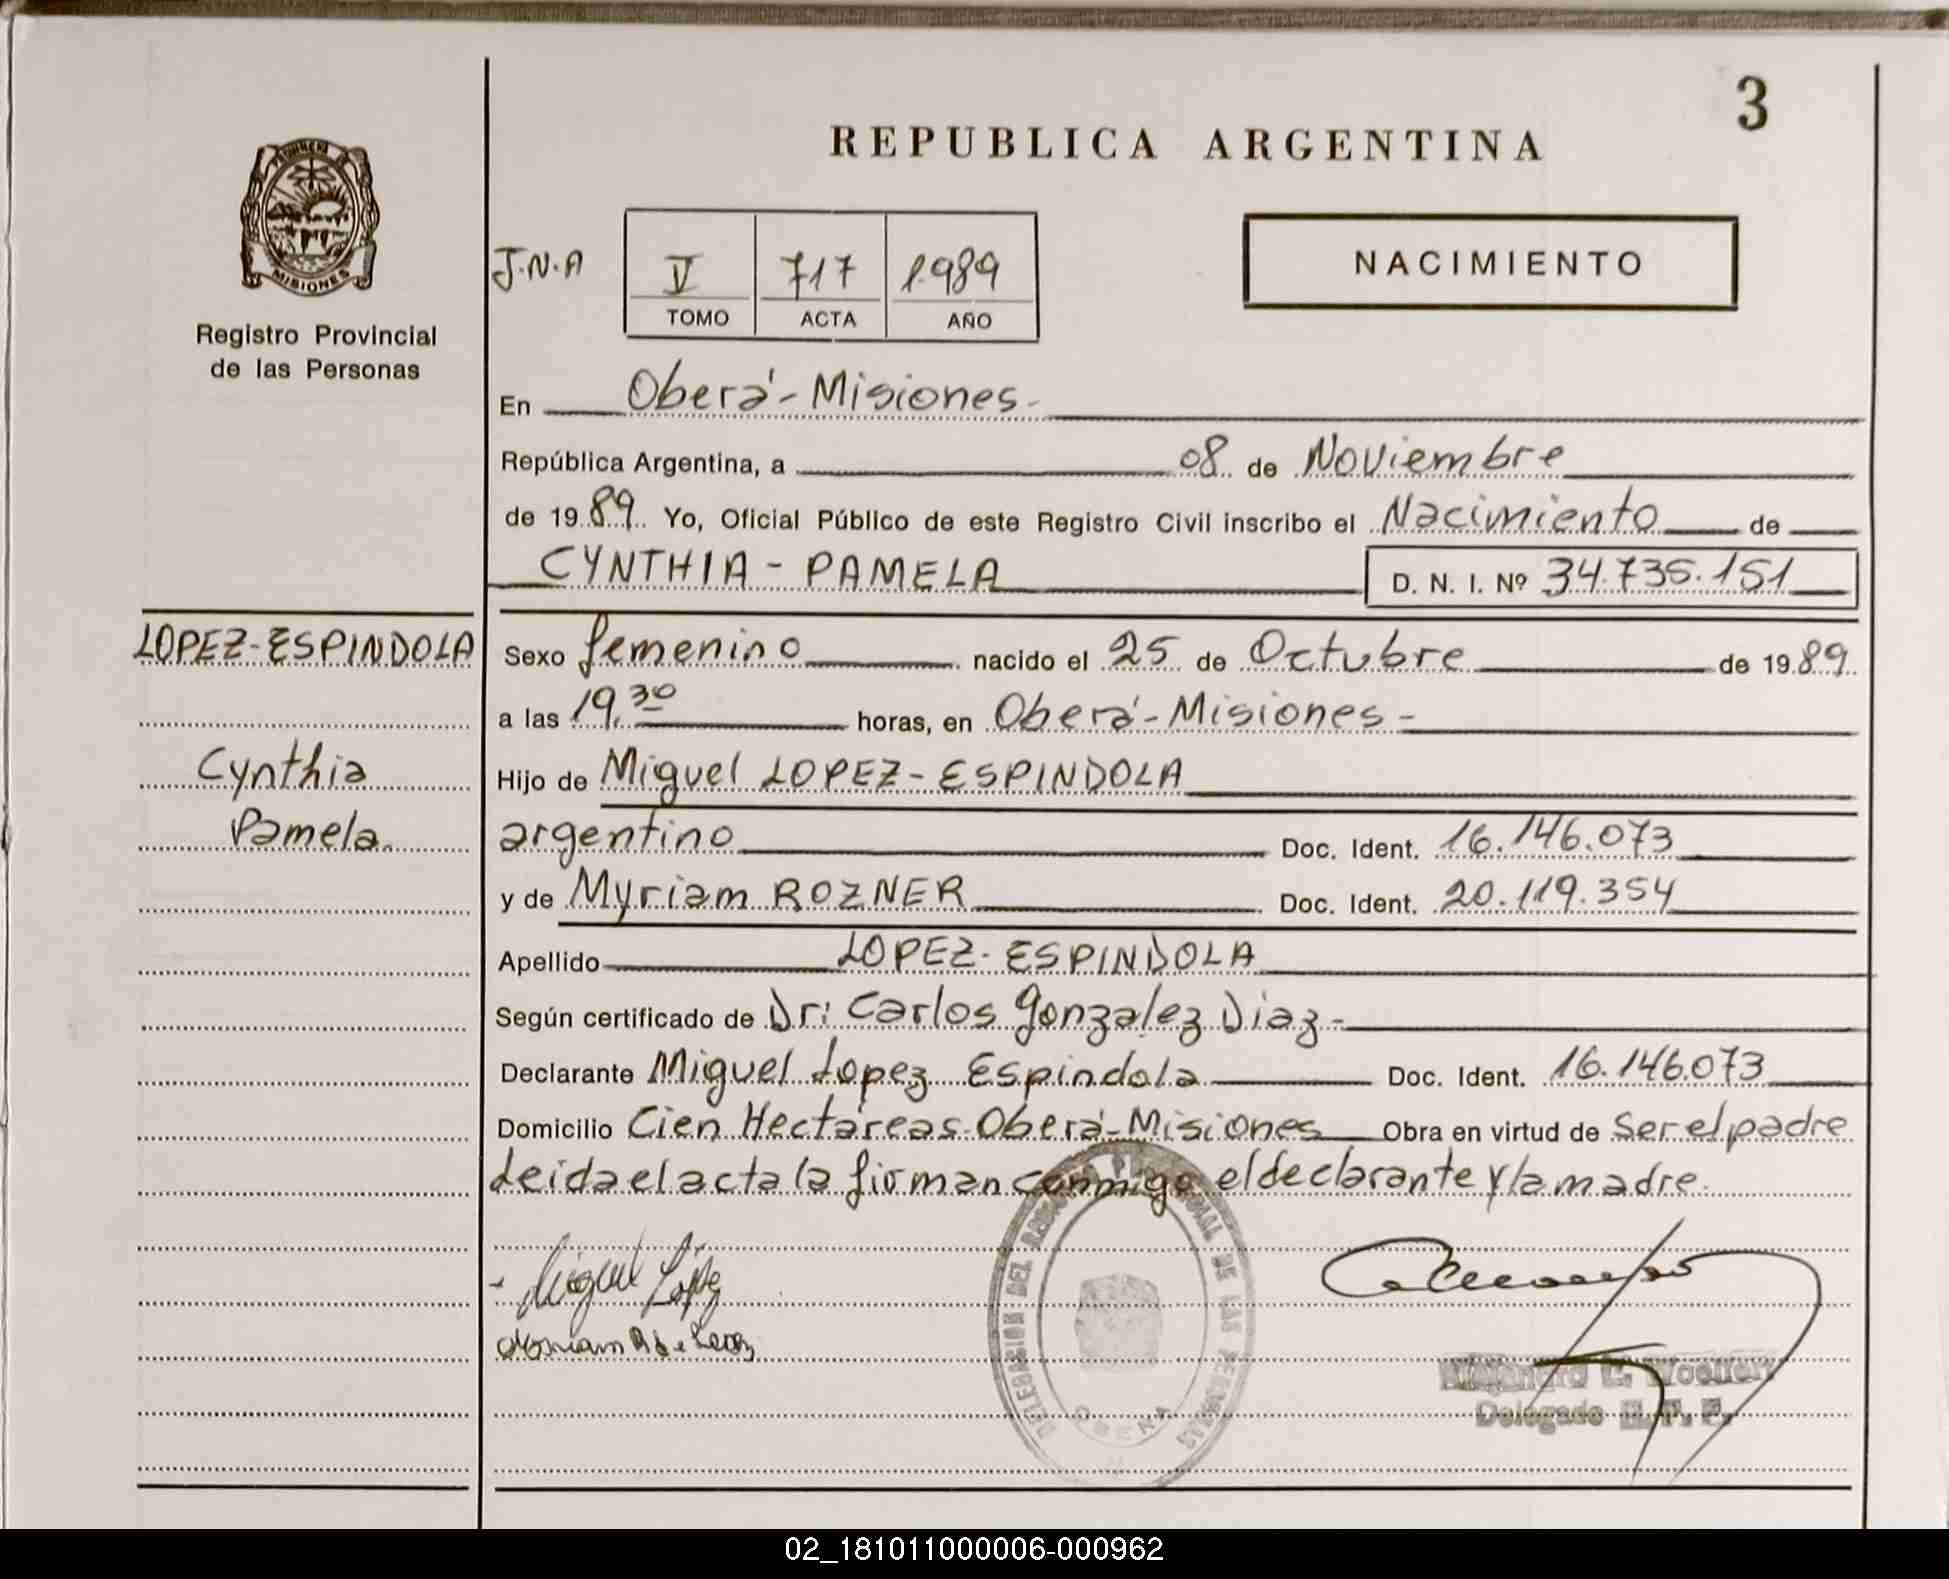 3
REPUBLICA ARGENTINA
PROVINCIA DE
MISIONES
Registro Provincial
de las Personas
J.N.A
V 717 1.989
TOMO ACTA AÑO
NACIMIENTO
En Oberá-Misiones-
República Argentina, a 08 de Noviembre
de 1989. Yo, Oficial Público de este Registro Civil inscribo el Nacimiento de
CYNTHIA-PAMELA D. N. I. Nº 34.735.151
LOPEZ-ESPINDOLA
Cynthia
Pamela.
Sexo femenino nacido el 25 de Octubre de 1989.
a las 19,30 horas, en Oberá-Misiones-
Hijo de Miguel LOPEZ-ESPINDOLA
argentino Doc. Ident. 16.146.073
y de Myriam ROZNER Doc. Ident. 20.119.354
Apellido LOPEZ-ESPINDOLA
Según certificado de Dr: Carlos Gonzalez Diaz-
Declarante Miguel Lopez Espindola Doc. Ident. 16.146.073
Domicilio Cien Hectáreas-Oberá-Misiones Obra en virtud de Ser el padre
Leida el acta la firman conmigo el declarante y la madre.
Miguel López
DELEGACION DEL REGISTRO PROVINCIAL DE LAS PERSONAS
OBERA
Delegado R. P. P.
02_181011000006-000962